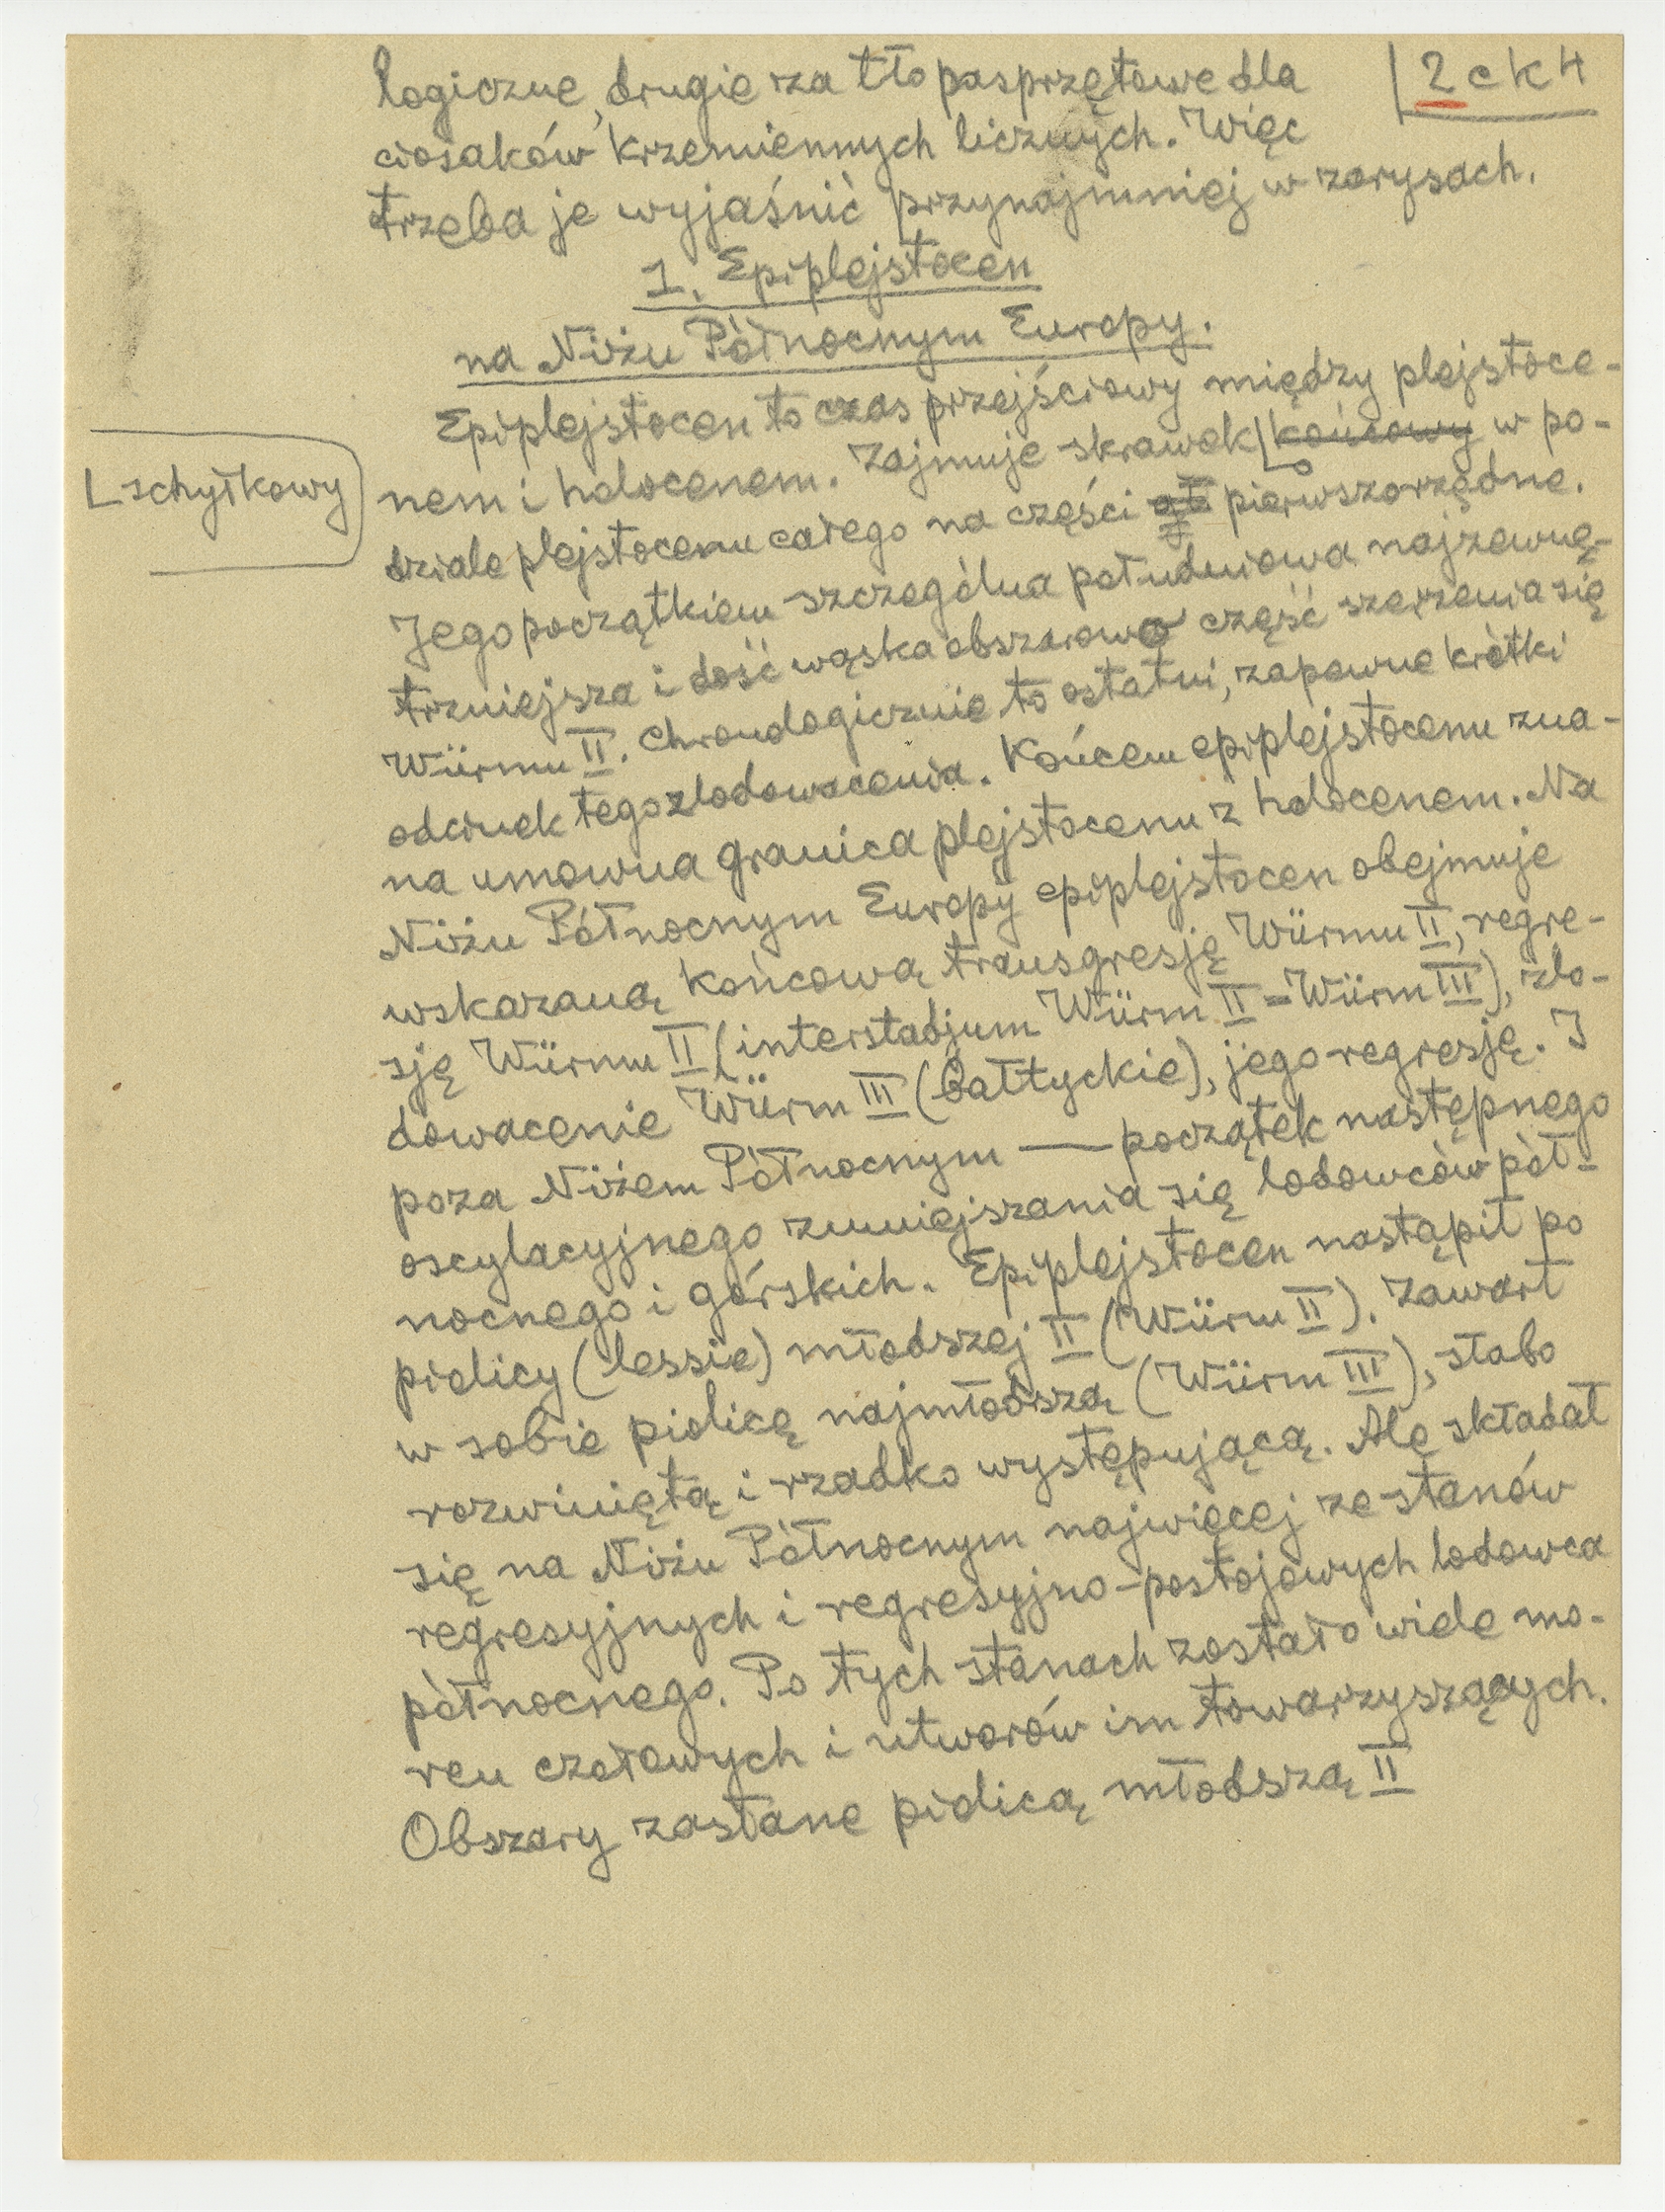 2 c k 4
logiczne, drugie za tło pasprzętowe dla
ciosaków krzemiennych licznych. Więc
trzeba je wyjaśnić przynajmniej w zarysach.
1. Epiplejstocen
na Niżu Północnym Europy.
Epiplejstocen to czas przejściowy między plejstoce-
nem i holocenem. Zajmuje skrawek końcowy w po-
schyłkowy
dziale plejstocenu całego na części pierwszorzędne.
Jego początkiem szczególna południowa najzewnę-
trzniejsza i dość wąska obszarowo część szerzenia się
Würmu II. Chronologicznie to ostatni, zapewne krótki
odcinek tego zlodowacenia. Końcem epiplejstocenu zna-
na umowna granica plejstocenu z holocenem. Na
Niżu Północnym Europy epiplejstocen obejmuje
wskazaną końcową transgresję Würmu II, regre-
sję Würmu II (interstadjum Würm II = Würm III), zlo-
dowacenie Würm III (Bałtyckie), jego regresję. I
poza Niżem Północnym — początek następnego
oscylacyjnego zmniejszania się lodowców pół-
nocnego i górskich. Epiplejstocen nastąpił po
pielicy (lessie) młodszej II (Würm II). Zawarł
w sobie pielicę najmłodszą (Würm III), słabo
rozwiniętą i rzadko występującą. Ale składał
się na Niżu Północnym najwięcej ze stanów
regresyjnych i regresyjno-postojowych lodowca
północnego. Po tych stanach zostało wiele mo-
ren czołowych i utworów im towarzyszących.
Obszary zasłane pielicą młodszą II